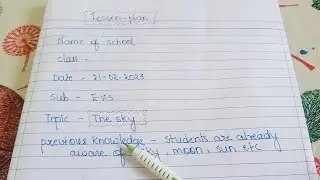 Lesson-plan
Name of school
class -
Date - 21-02-2023
Sub - EVS
Tropic - The sky
previous knowledge - students are already
aware of sky, moon, sun etc